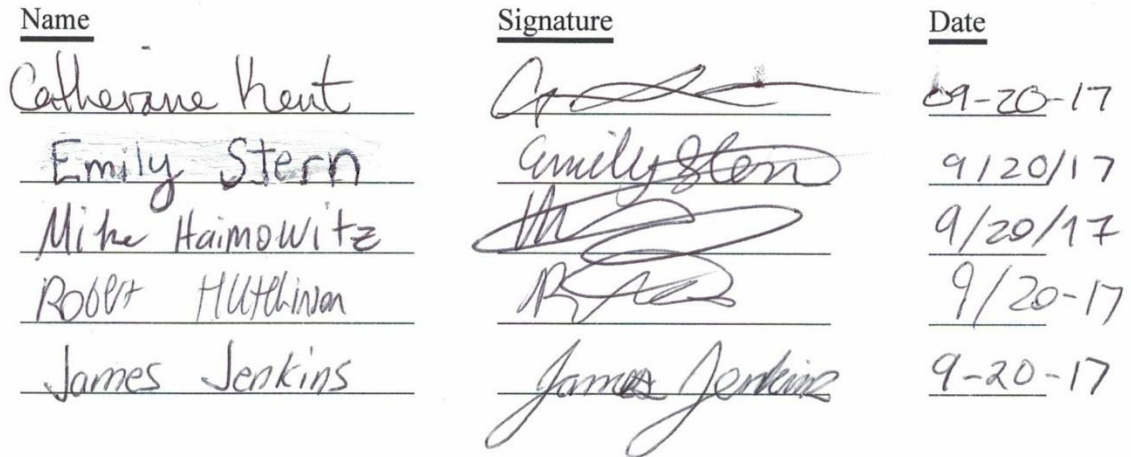 Name Signature Date
Catherine Kent 09-20-17
Emily Stern Emily Stern 9/20/17
Mike Haimowitz 9/20/17
Robert Hutchinson 9/20-17
James Jenkins James Jenkins 9-20-17